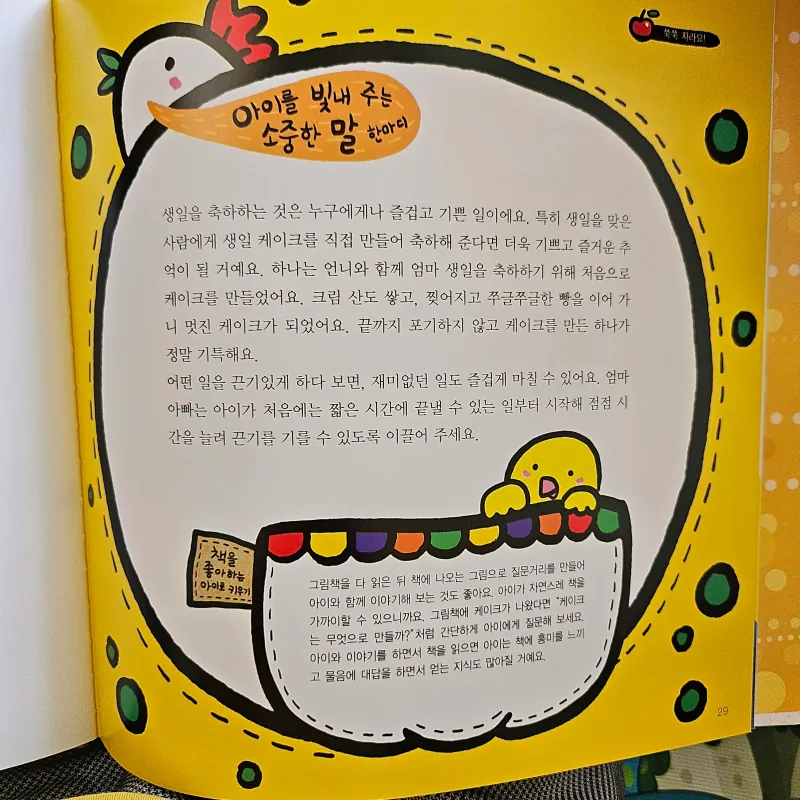 쑥쑥 자라요!
아이를 빛내 주는
소중한 말 한마디
생일을 축하하는 것은 누구에게나 즐겁고 기쁜 일이에요. 특히 생일을 맞은
사람에게 생일 케이크를 직접 만들어 축하해 준다면 더욱 기쁘고 즐거운 추
억이 될 거예요. 하나는 언니와 함께 엄마 생일을 축하하기 위해 처음으로
케이크를 만들었어요. 크림 산도 쌓고, 찢어지고 쭈글쭈글한 빵을 이어 가
니 멋진 케이크가 되었어요. 끝까지 포기하지 않고 케이크를 만든 하나가
정말 기특해요.
어떤 일을 끈기있게 하다 보면, 재미없던 일도 즐겁게 마칠 수 있어요. 엄마
아빠는 아이가 처음에는 짧은 시간에 끝낼 수 있는 일부터 시작해 점점 시
간을 늘려 끈기를 기를 수 있도록 이끌어 주세요.
책을
좋아하는
아이로 키우기
그림책을 다 읽은 뒤 책에 나오는 그림으로 질문거리를 만들어
아이와 함께 이야기해 보는 것도 좋아요. 아이가 자연스레 책을
가까이할 수 있으니까요. 그림책에 케이크가 나왔다면 “케이크
는 무엇으로 만들까?”처럼 간단하게 아이에게 질문해 보세요.
아이와 이야기를 하면서 책을 읽으면 아이는 책에 흥미를 느끼
고 물음에 대답을 하면서 얻는 지식도 많아질 거예요.
29